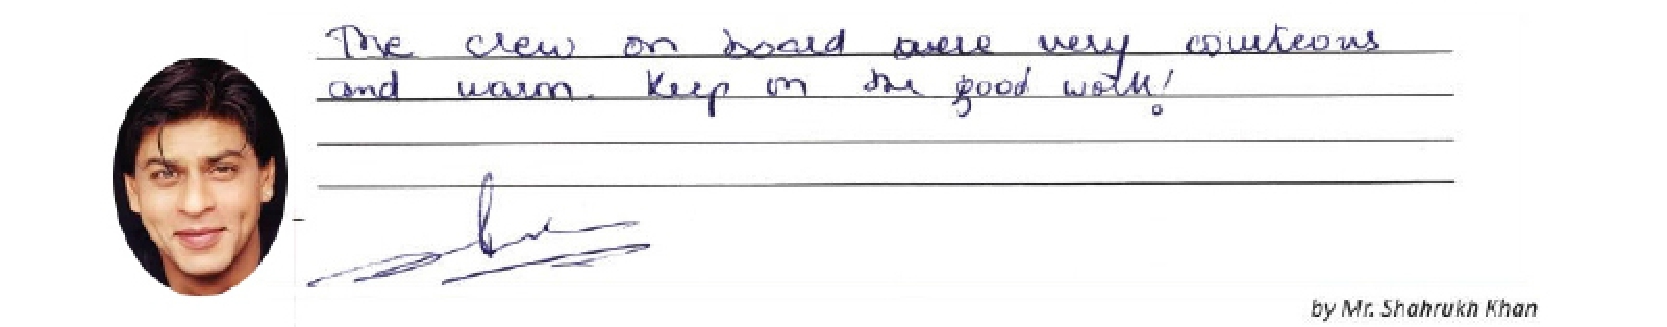 The crew on board were very courteous
and warm. Keep on the good work!
by Mr. Shahrukh Khan